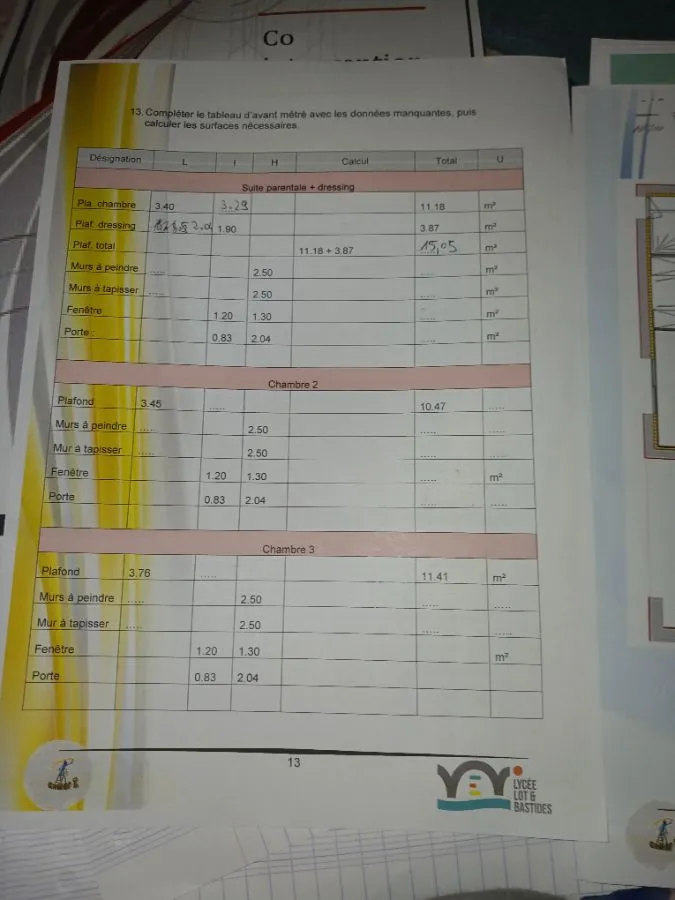 Co
13. Compléter le tableau d'avant métré avec les données manquantes, puis
calculer les surfaces nécessaires.
Désignation L l H Calcul Total U
Suite parentale + dressing
Pla. chambre 3.40 3.29 11.18 m²
Plaf. dressing 2.04 1.90 3.87 m²
Plaf. total 11.18 + 3.87 15,05 m²
Murs à peindre ..... 2.50 ..... m²
Murs à tapisser ..... 2.50 ..... m²
Fenêtre 1.20 1.30 ..... m²
Porte : 0.83 2.04 ..... m²
Chambre 2
Plafond 3.45 ..... 10.47 .....
Murs à peindre ..... 2.50 ..... .....
Mur à tapisser ..... 2.50 ..... .....
Fenêtre 1.20 1.30 ..... m²
Porte 0.83 2.04 ..... .....
Chambre 3
Plafond 3.76 ..... 11.41 m²
Murs à peindre ..... 2.50 ..... .....
Mur à tapisser ..... 2.50 ..... .....
Fenêtre 1.20 1.30 m²
Porte 0.83 2.04
13
LYCÉE
LOT &
BASTIDES